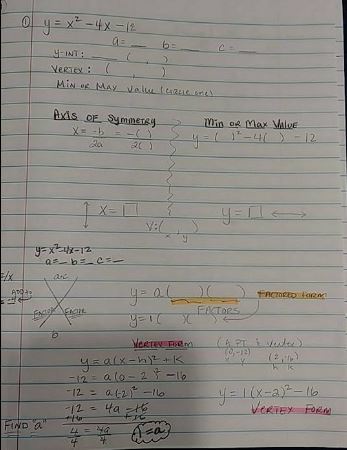 ① y = x² - 4x - 12
a = __ b = __ c = __
y-INT: __ ( , )
VERTEX: ( , )
MIN OR MAX value (circle one)
Axis OF Symmetry
Min or Max Value
x = -b/2a = -( )/2( )
y = ( )² - 4( ) - 12
x = □
y = □
V: ( , )
x y
y = x² - 4x - 12
a = _ b = _ c = _
a·c
ADD to
FACTOR FACTOR
b
y = a( )( )
FACTORED FORM
y = 1( )( )
FACTORS
VERTEX FORM
(A PT & vertex)
(0, -12) (2, -16)
x y h k
y = a(x - h)² + k
-12 = a(0 - 2)² - 16
-12 = a(-2)² - 16
y = 1(x - 2)² - 16
-12 = 4a - 16
VERTEX FORM
+16 +16
FIND "a"
4/4 = 4a/4
1 = a